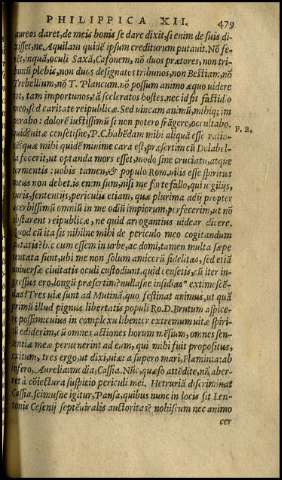 PHILIPPICA XII. 479
aureos daret, de meis bonis se dare dixit, si enim de suis di-
xisset, ne Aquilam quidē ipsum crediturum putauit. Nō fe-
rēt, inquā, oculi Saxā, Cafonem, nō duos prætores, non tri-
munū plebis, non duos designatos tribunos, non Bestiam, nō
Trebellium, nō T. Plancum. nō possum animo æquo videre
tot, tam importunos, tā sceleratos hostes. nec id fit fastidio
meo, sed caritate reipublicæ. Sed vincam animū, mihiq; im
perabo: dolorē iustissimū si non potero frāgere, occultabo.
quid? vitæ censetisne, P. C. habēdam mihi aliquā esse rationē? P. R.
quæ mihi quidē minime cara est, præsertim cū Dolabel-
la fecerit, ut optanda mors esset, modo sine cruciatu, atque
tormentis: vobis tamen, & populo Romano vilis esse spiritus
meus non debet. is enim sum, nisi me forte fallo, qui vigiliis,
curis, sententiis, periculis etiam, quæ plurima adij propter
acerbissimū omniū in me odiū impiorum, perfecerim, ut nō
obstarem reipublicæ, ne quid arrogantius videar dicere.
quod cū ita sit nihilne mihi de periculo meo cogitandum
putatis? hic cum essem in urbe, ac domi, tamen multa sæpe
tentata sunt, ubi me non solum amicorū fidelitas, sed etiā
universæ ciuitatis oculi custodiunt, quid censetis, cū iter in-
gressus ero, longū præsertim? nullasne insidias extimescē-
das? Tres viæ sunt ad Mutinā, quo festinat animus, ut quā
primū illud pignus libertatis populi Ro. D. Brutum aspice-
re possim: cuius in complexu libenter extremum vitæ spiri-
tum ediderim, cū omnes actiones horum mēsium, omnes sen-
tentiæ meæ peruenerint ad eam, qui mihi fuit propositus,
exitum, tres ergo, ut dixi, viæ: a supero mari, Flaminia: ab
infero, Aurelia: media, Cassia. Nūc, quæso attēdite, nō, aber-
ret a coniectura suspitio periculi mei. Hetruriā discriminat
Cassia. scimusne igitur, Pansa, quibus nunc in locis sit Len-
tonis Cesenij septēuiralis auctoritas? nobiscum nec animo
cer